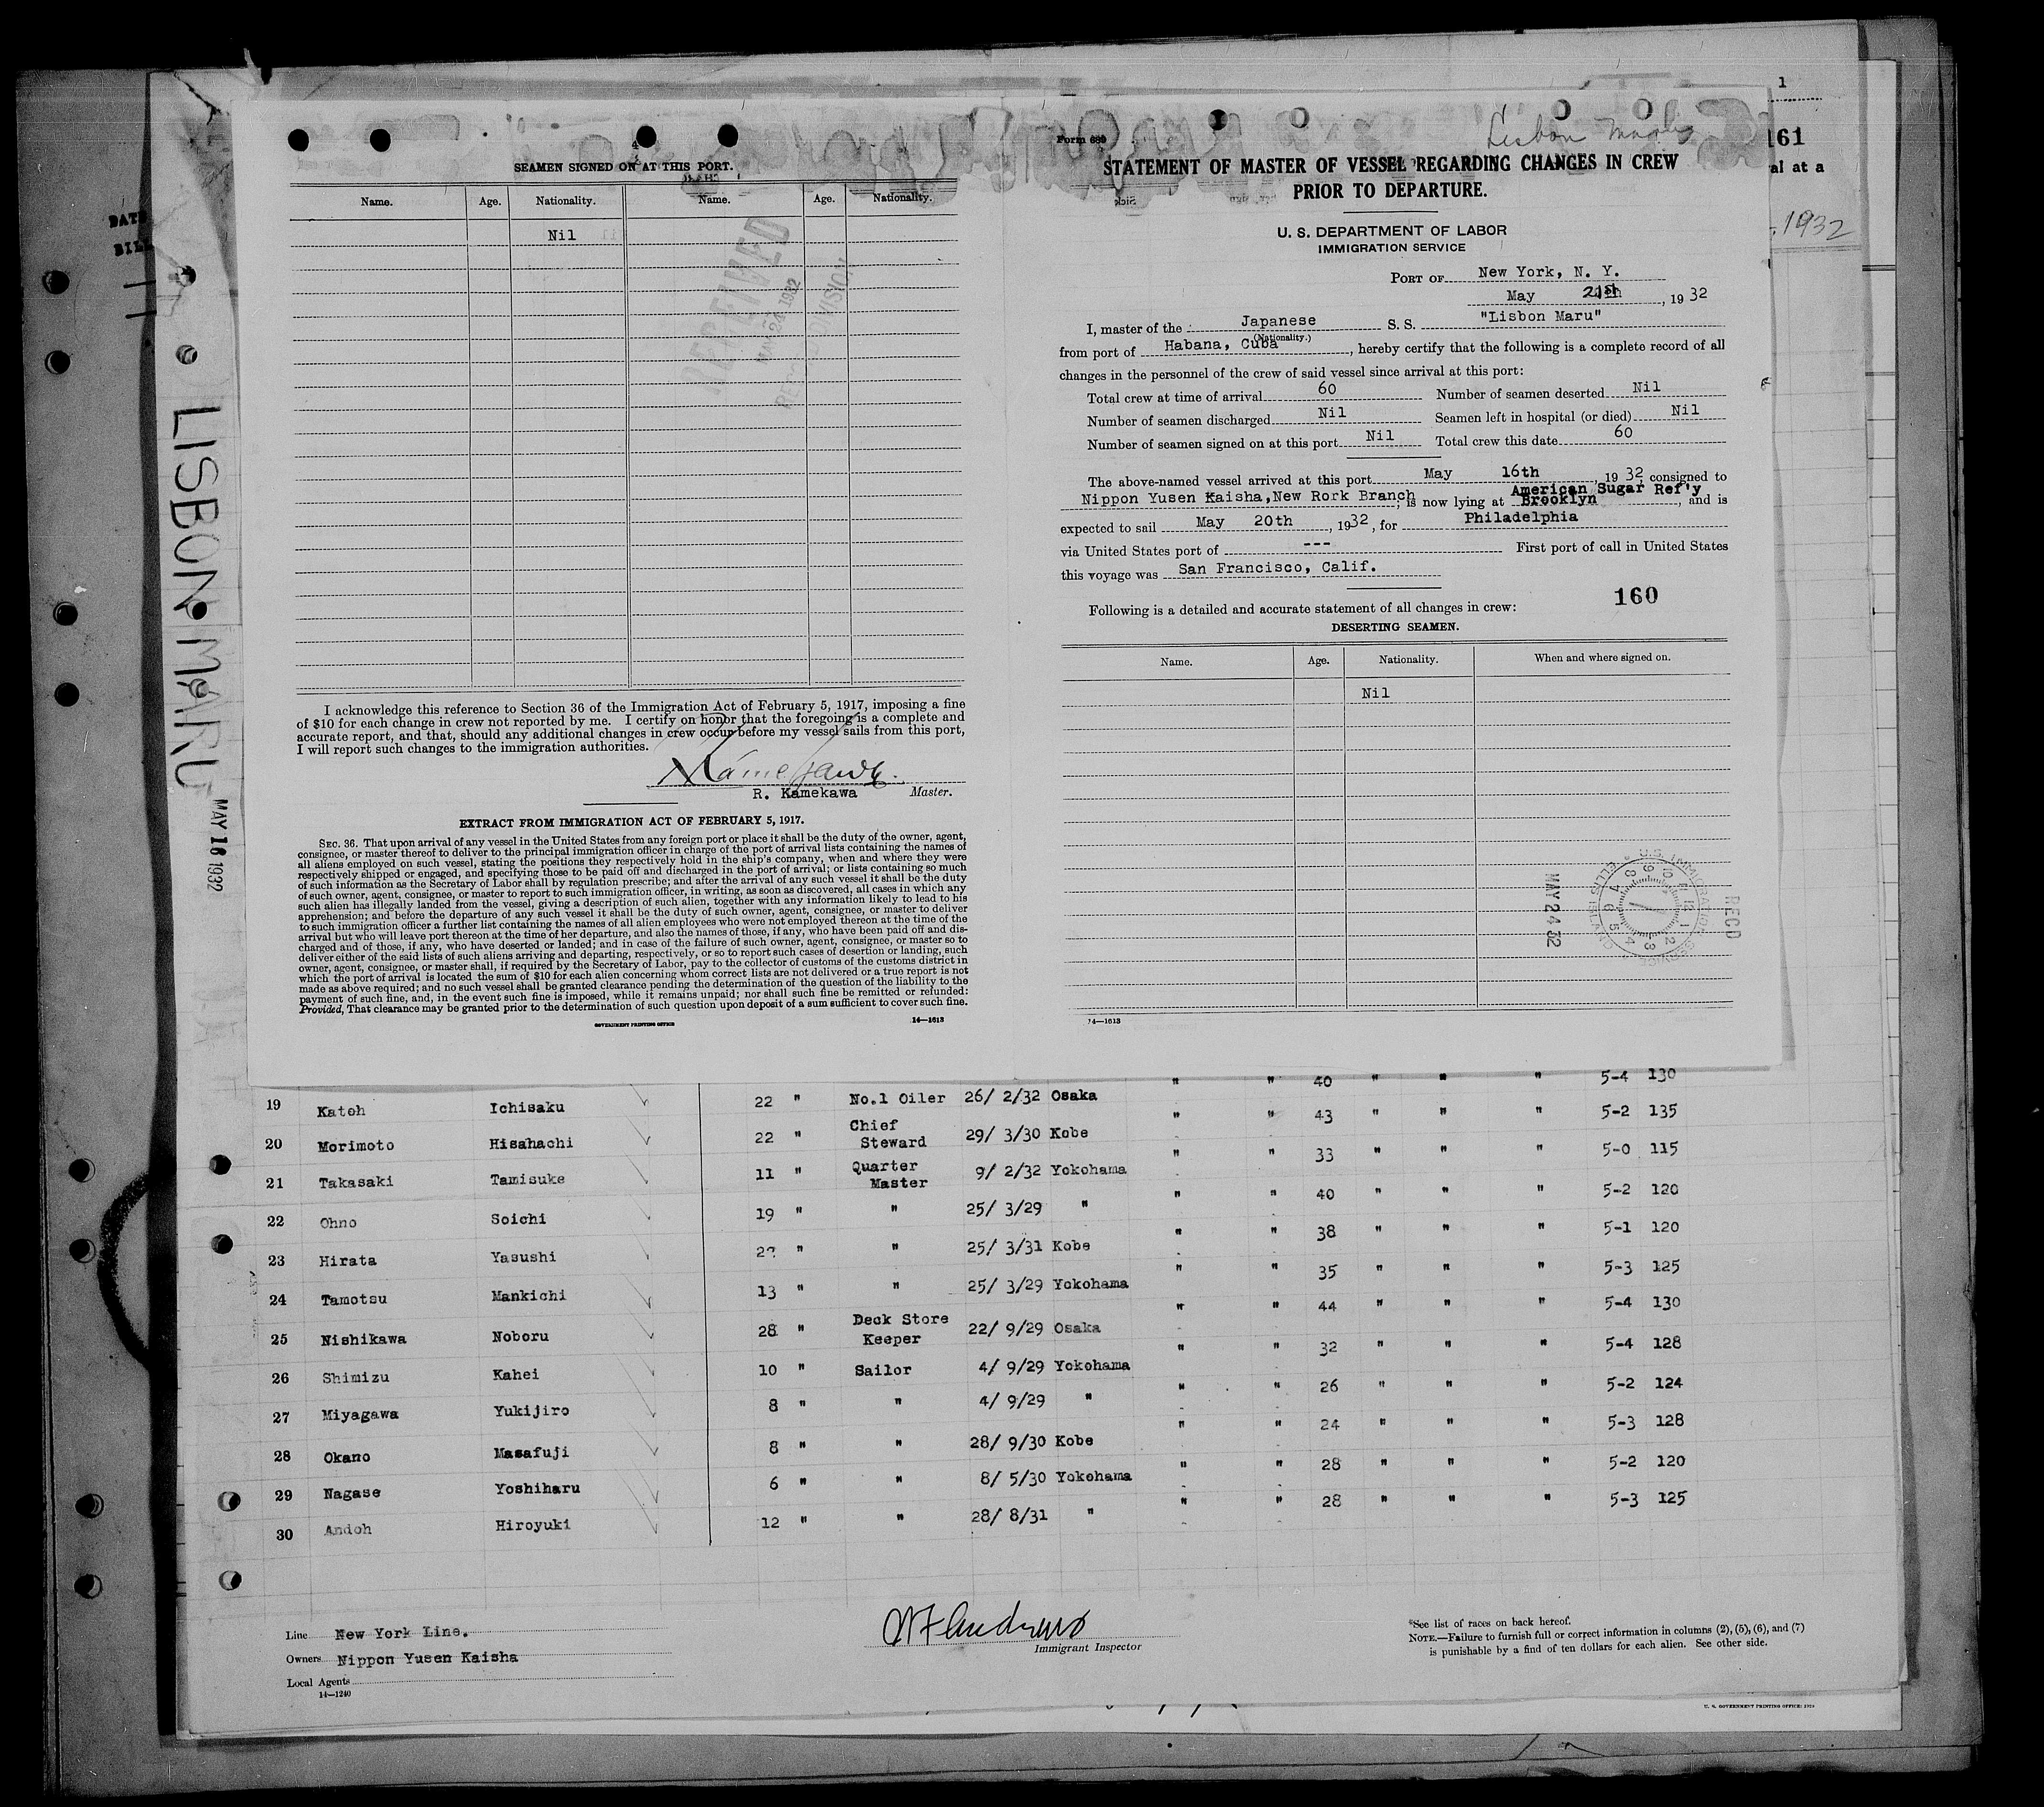 DATE
BILL
LISBON MARU
MAY 16 1932
1
161
al at a
1932
4
SEAMEN SIGNED ON AT THIS PORT.
Name. Age. Nationality. Name. Age. Nationality.
Nil
RECEIVED
MAY 24 1932
RECORD DIVISION
I acknowledge this reference to Section 36 of the Immigration Act of February 5, 1917, imposing a fine
of $10 for each change in crew not reported by me. I certify on honor that the foregoing is a complete and
accurate report, and that, should any additional changes in crew occur before my vessel sails from this port,
I will report such changes to the immigration authorities.
R. Kamekawa Master.
EXTRACT FROM IMMIGRATION ACT OF FEBRUARY 5, 1917.
SEC. 36. That upon arrival of any vessel in the United States from any foreign port or place it shall be the duty of the owner, agent,
consignee, or master thereof to deliver to the principal immigration officer in charge of the port of arrival lists containing the names of
all aliens employed on such vessel, stating the positions they respectively hold in the ship's company, when and where they were
respectively shipped or engaged, and specifying those to be paid off and discharged in the port of arrival; or lists containing so much
of such information as the Secretary of Labor shall by regulation prescribe; and after the arrival of any such vessel it shall be the duty
of such owner, agent, consignee, or master to report to such immigration officer, in writing, as soon as discovered, all cases in which any
such alien has illegally landed from the vessel, giving a description of such alien, together with any information likely to lead to his
apprehension; and before the departure of any such vessel it shall be the duty of such owner, agent, consignee, or master to deliver
to such immigration officer a further list containing the names of all alien employees who were not employed thereon at the time of the
arrival but who will leave port thereon at the time of her departure, and also the names of those, if any, who have been paid off and dis-
charged and of those, if any, who have deserted or landed; and in case of the failure of such owner, agent, consignee, or master so to
deliver either of the said lists of such aliens arriving and departing, respectively, or so to report such cases of desertion or landing, such
owner, agent, consignee, or master shall, if required by the Secretary of Labor, pay to the collector of customs of the customs district in
which the port of arrival is located the sum of $10 for each alien concerning whom correct lists are not delivered or a true report is not
made as above required; and no such vessel shall be granted clearance pending the determination of the question of the liability to the
payment of such fine, and, in the event such fine is imposed, while it remains unpaid; nor shall such fine be remitted or refunded:
Provided, That clearance may be granted prior to the determination of such question upon deposit of a sum sufficient to cover such fine.
GOVERNMENT PRINTING OFFICE 14—1613
Form 689
Lisbon Maru
STATEMENT OF MASTER OF VESSEL REGARDING CHANGES IN CREW
PRIOR TO DEPARTURE.
U. S. DEPARTMENT OF LABOR
IMMIGRATION SERVICE
PORT OF New York, N. Y.
May 21st, 1932
I, master of the Japanese S. S. "Lisbon Maru"
(Nationality.)
from port of Habana, Cuba, hereby certify that the following is a complete record of all
changes in the personnel of the crew of said vessel since arrival at this port:
Total crew at time of arrival 60 Number of seamen deserted Nil
Number of seamen discharged Nil Seamen left in hospital (or died) Nil
Number of seamen signed on at this port Nil Total crew this date 60
The above-named vessel arrived at this port May 16th, 1932, consigned to
American Sugar Ref'y
Nippon Yusen Kaisha,New Rork Branch; is now lying at Brooklyn, and is
expected to sail May 20th, 1932, for Philadelphia
via United States port of --- First port of call in United States
this voyage was San Francisco, Calif.
160
Following is a detailed and accurate statement of all changes in crew:
DESERTING SEAMEN.
Name. Age. Nationality. When and where signed on.
Nil
RECD
U.S. IMMIGRATION SERVICE ELLIS ISLAND
MAY 24 32
14—1613
" " 40 " " " 5-4 130
19 Katoh Ichisaku 22 " No.1 Oiler 26/ 2/32 Osaka " " 43 " " " 5-2 135
20 Morimoto Hisahachi 22 " Chief Steward 29/ 3/30 Kobe " " 33 " " " 5-0 115
21 Takasaki Tamisuke 11 " Quarter Master 9/ 2/32 Yokohama " " 40 " " " 5-2 120
22 Ohno Soichi 19 " " 25/ 3/29 " " " 38 " " " 5-1 120
23 Hirata Yasushi " " 25/ 3/31 Kobe " " 35 " " " 5-3 125
24 Tamotsu Mankichi 13 " " 25/ 3/29 Yokohama " " 44 " " " 5-4 130
25 Nishikawa Noboru 28 " Deck Store Keeper 22/ 9/29 Osaka " " 32 " " " 5-4 128
26 Shimizu Kahei 10 " Sailor 4/ 9/29 Yokohama " " 26 " " " 5-2 124
27 Miyagawa Yukijiro 8 " " 4/ 9/29 " " " 24 " " " 5-3 128
28 Okano Masafuji 8 " " 28/ 9/30 Kobe " " 28 " " " 5-2 120
29 Nagase Yoshiharu 6 " " 8/ 5/30 Yokohama " " 28 " " " 5-3 125
30 Andoh Hiroyuki 12 " " 28/ 8/31 "
Line New York Line.
Owners Nippon Yusen Kaisha
Local Agents
14—1240
Immigrant Inspector
*See list of races on back hereof.
NOTE.—Failure to furnish full or correct information in columns (2), (5), (6), and (7)
is punishable by a find of ten dollars for each alien. See other side.
U. S. GOVERNMENT PRINTING OFFICE: 1928